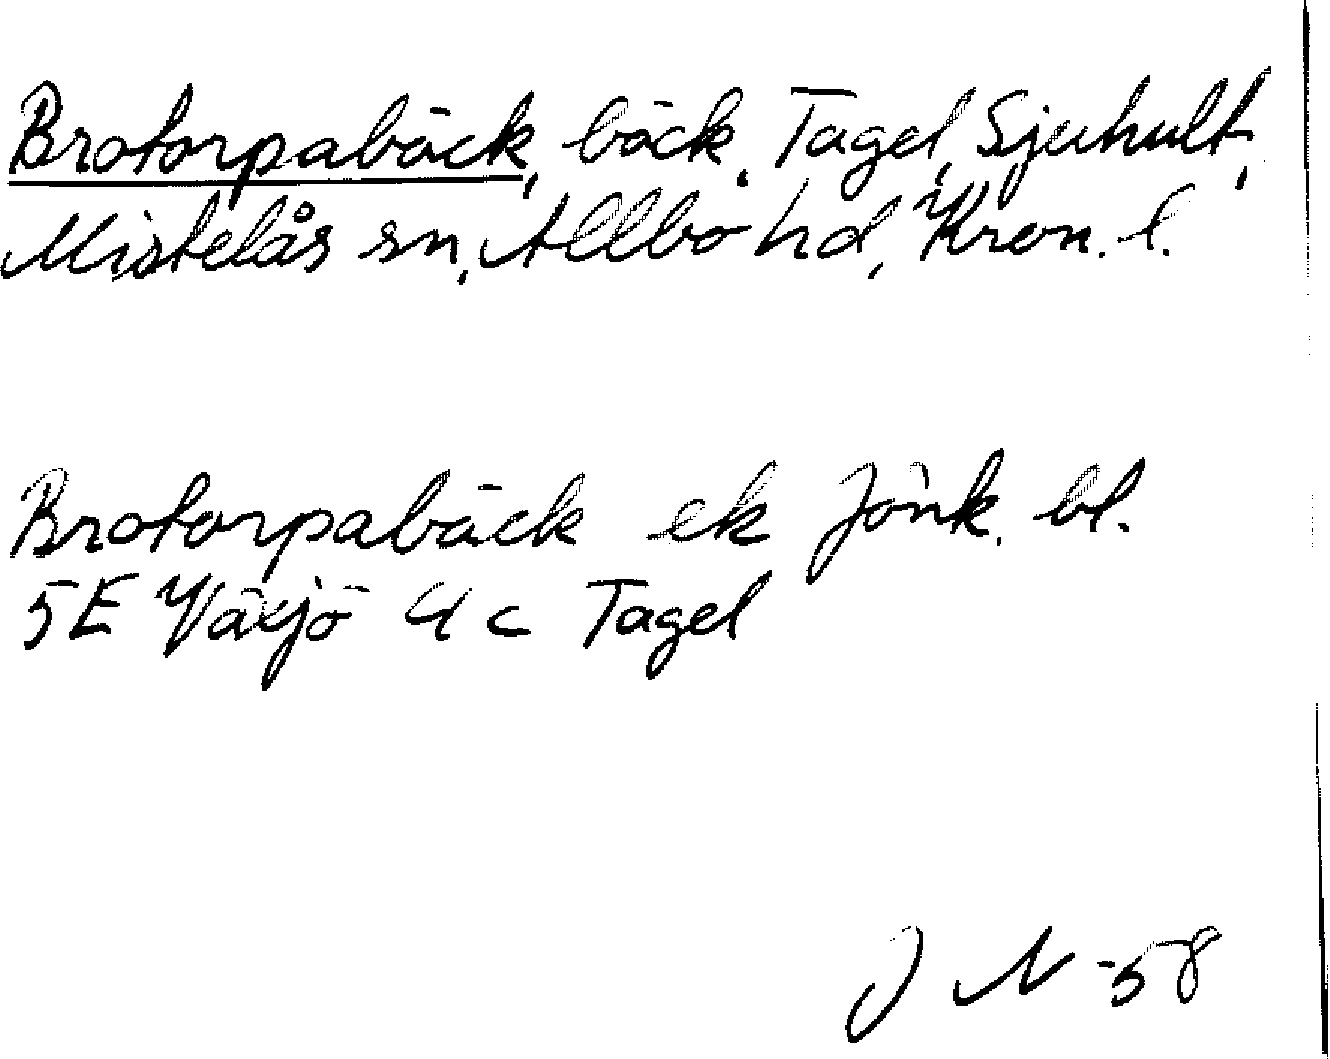 Brotorpabäck, bäck, Tagel, Sjuhult,
Mistelås sn, Allbo hd, Kron. l.
Brotorpabäck ek Jönk. bl.
5E Växjö 4c Tagel
J N -58